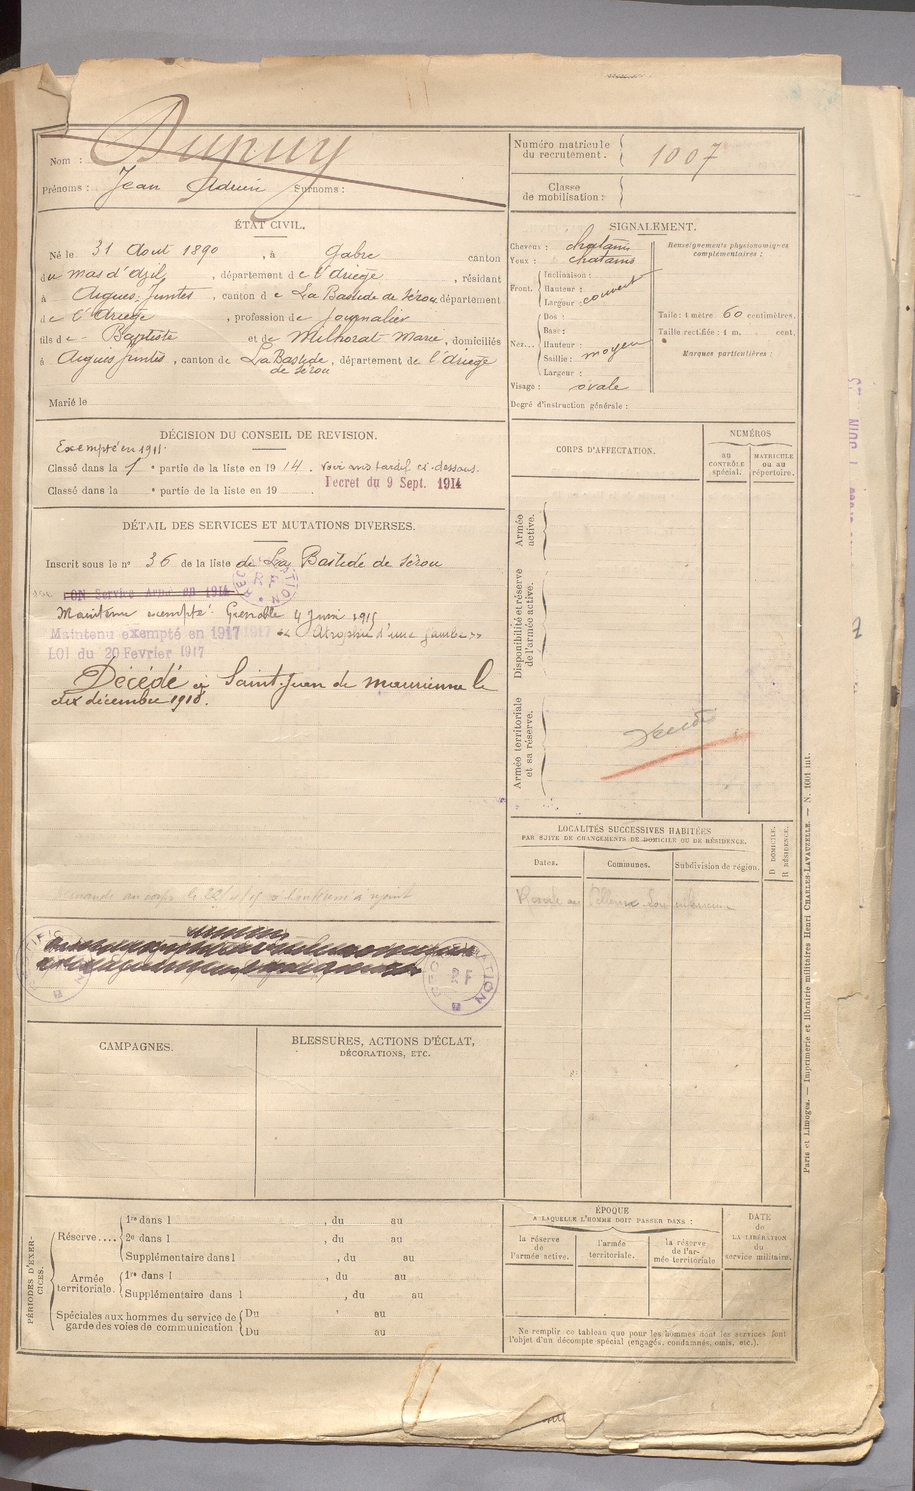 Nom : Dupuy
Prénoms : Jean Adrien Surnoms :
Numéro matricule du recrutement. 1007
Classe de mobilisation :
ÉTAT CIVIL.
Né le 31 Août 1890, à Gabre canton
du mas d'azil, département de l'ariège, résidant
à Aigues-Juntes, canton de La Bastide de Sérou département
de l'Ariège, profession de journalier
fils de Baptiste et de Milhorat Marie, domiciliés
à Aigues Juntes, canton de La Bastide de Sérou, département de l'ariège
Marié le
SIGNALEMENT.
Cheveux : chatains
Yeux : chatains
Front. Inclinaison :
Hauteur : couvert
Largeur :
Nez... Dos :
Base :
Hauteur : moyen
Saillie :
Largeur :
Visage : ovale
Degré d'instruction générale :
Renseignements physionomiques complémentaires :
Taille : 1 mètre 60 centimètres.
Taille rectifiée : 1 m. cent.
Marques particulières :
DÉCISION DU CONSEIL DE REVISION.
Exempté en 1911.
Classé dans la 1e partie de la liste en 1914. voir ci-dessous.
Décret du 9 Sept. 1914
Classé dans la e partie de la liste en 19
DÉTAIL DES SERVICES ET MUTATIONS DIVERSES.
Inscrit sous le n° 36 de la liste de La Bastide de Sérou
BON Service Armé en 1914
Maintenu exempté. Grenoble 4 Juin 1915
Maintenu exempté en 1917 « Atrophie d'une jambe »
LOI du 20 Fevrier 1917
Décédé à Saint-Jean de maurienne le
dix décembre 1918.
CORPS D'AFFECTATION.
NUMÉROS
au CONTRÔLE spécial.
MATRICULE ou au répertoire.
Armée active.
Disponibilité et réserve de l'armée active.
Armée territoriale et sa réserve.
LOCALITÉS SUCCESSIVES HABITÉES
PAR SUITE DE CHANGEMENTS DE DOMICILE OU DE RÉSIDENCE.
Dates.
Communes.
Subdivision de région.
D DOMICILE.
R RÉSIDENCE.
RF
CAMPAGNES.
BLESSURES, ACTIONS D'ÉCLAT,
DÉCORATIONS, ETC.
PÉRIODES D'EXERCICES.
Réserve.... 1re dans l , du au
2e dans l , du au
Supplémentaire dans l , du au
Armée territoriale. 1re dans l , du au
Supplémentaire dans l , du au
Spéciales aux hommes du service de garde des voies de communication Du au
Du au
ÉPOQUE
A LAQUELLE L'HOMME DOIT PASSER DANS :
la réserve de l'armée active.
l'armée territoriale.
la réserve de l'armée territoriale
DATE de LA LIBÉRATION du service militaire.
Ne remplir ce tableau que pour les hommes dont les services font
l'objet d'un décompte spécial (engagés, condamnés, omis, etc.).
Paris et Limoges. — Imprimerie et librairie militaires Henri CHARLES-LAVAUZELLE. — N. 1001 int.